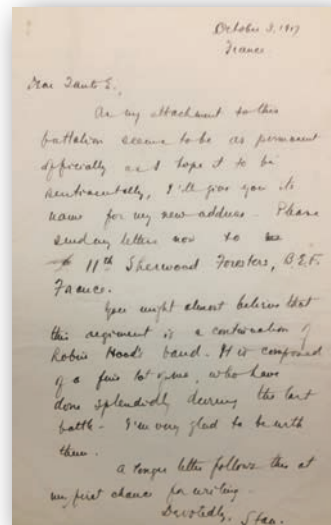 October 3, 1917
France.
Dear Tante E.,
As my attachment to this
battalion seems to be as permanent
officially as I hope it to be
sentimentally, I'll give you its
name for my new address. Please
send my letters now to
11th Sherwood Foresters, B.E.F.
France.
You might almost believe that
this regiment is a continuation of
Robin Hood's band. It is composed
of a fine lot of men, who have
done splendidly during the last
battle. I'm very glad to be with
them.
A longer letter follows this at
my first chance for writing.
Devotedly, Stan.